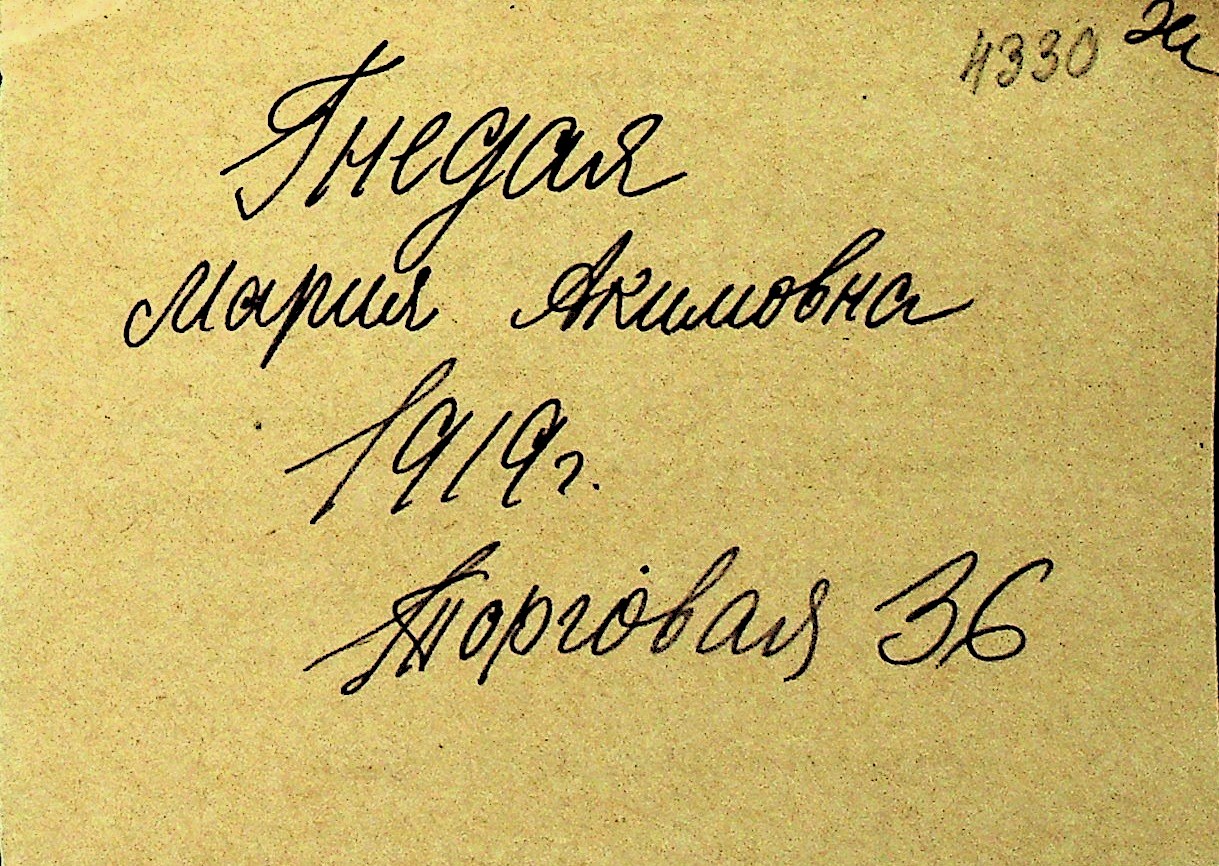 4330 ж
Гнедая
Мария Акимовна
1919г.
Торговая 36